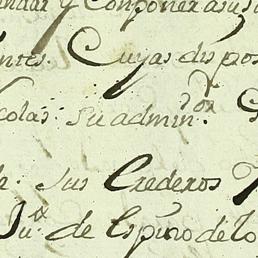 y Componer asus
ntes. Cuyas dispos
colas: su admin.dor
sus Crederos
Ju.x de Espiro de lo